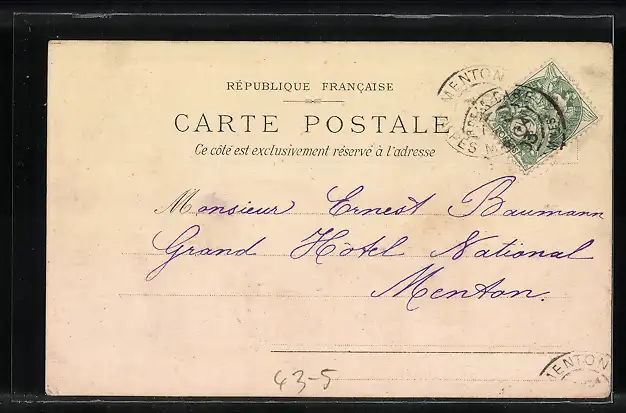 RÉPUBLIQUE FRANÇAISE
CARTE POSTALE
Ce côté est exclusivement réservé à l'adresse
MENTON
Monsieur Ernest Baumann
Grand Hôtel National
Menton.
MENTON
43-5